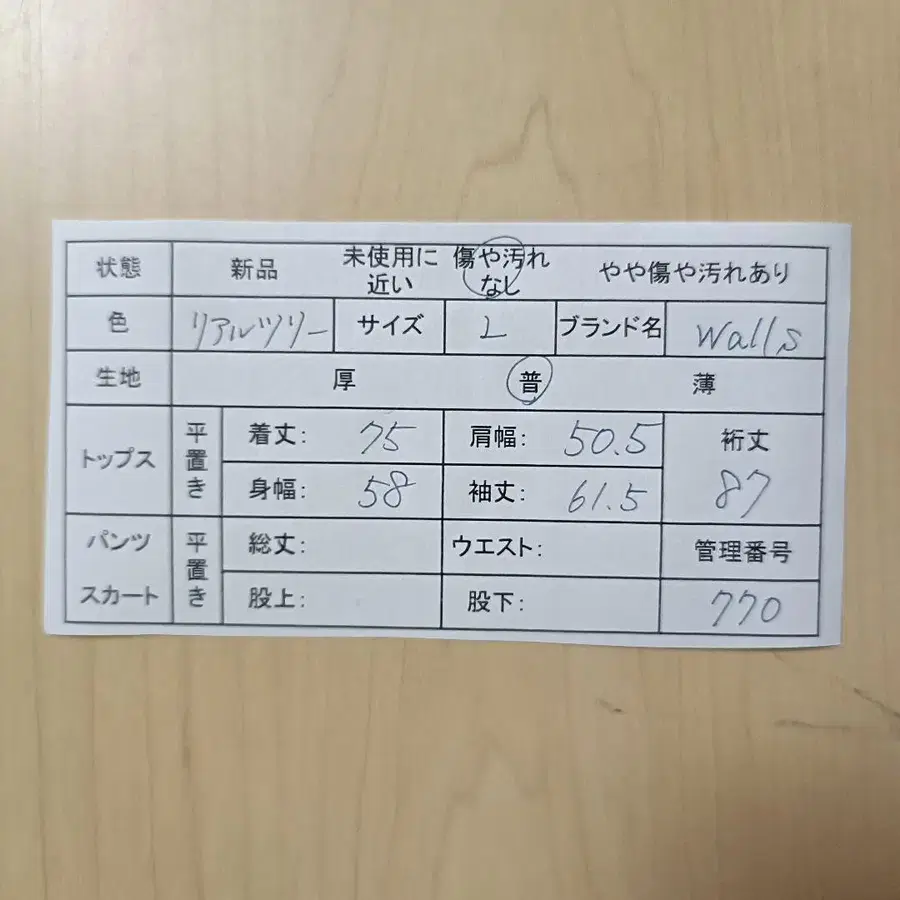 状態 新品 未使用に近い 傷や汚れなし やや傷や汚れあり
色 リアルツリー サイズ L ブランド名 Walls
生地 厚 普 薄
トップス 平置き 着丈: 75 肩幅: 50.5 裄丈
身幅: 58 袖丈: 61.5 87
パンツ 平置き 総丈: ウエスト: 管理番号
スカート 股上: 股下: 770